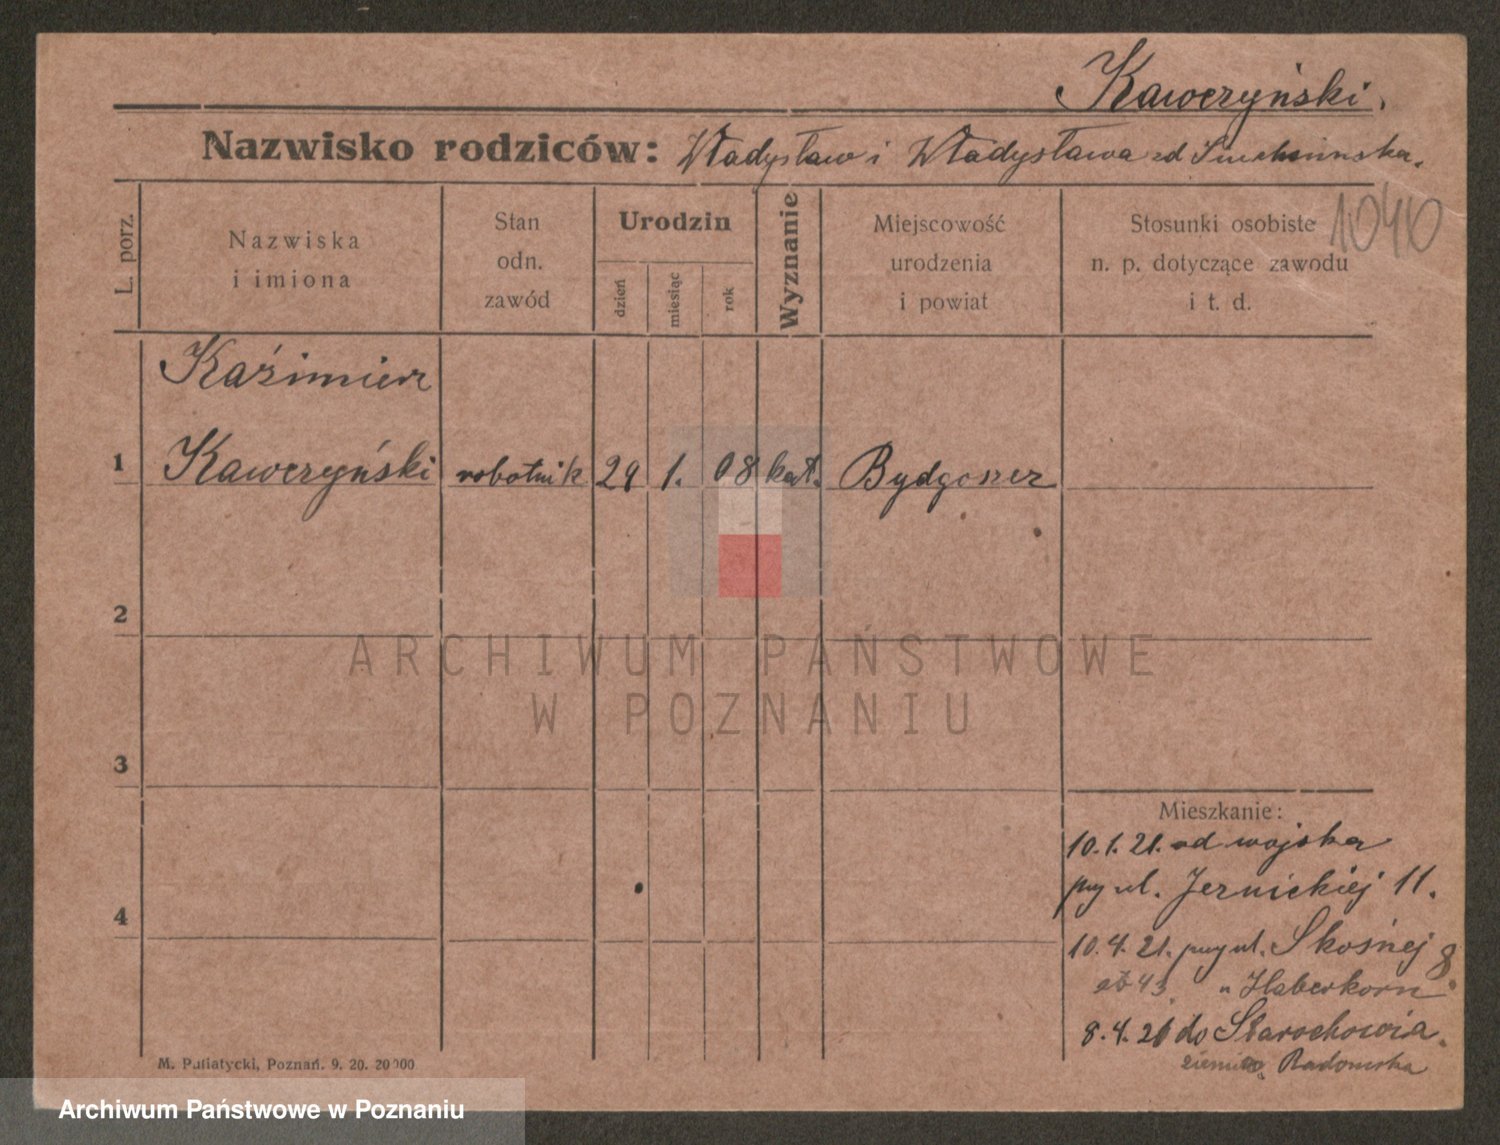 Kawczyński.
Nazwisko rodziców: Władysław i Władysława zd
1040
L. porz.
Nazwiska
i imiona
Stan
odn.
zawód
Urodzin
dzień
miesiąc
rok
Wyznanie
Miejscowość
urodzenia
i powiat
Stosunki osobiste
n. p. dotyczące zawodu
i t. d.
Kaźimierz
1 Kawczyński robotnik 29 1. 08 kat. Bydgoszcz
2
3
4
Mieszkanie:
10.1.21. od wojska
przy ul. Jezuickiej 11.
10.4.21. przy ul. Skośnej 8.
u Haberkorn
8.4.26 do Starochowia.
ziemia Radomska
M. Putiatycki, Poznań. 9. 20. 20000
ARCHIWUM PAŃSTWOWE
W POZNANIU
Archiwum Państwowe w Poznaniu